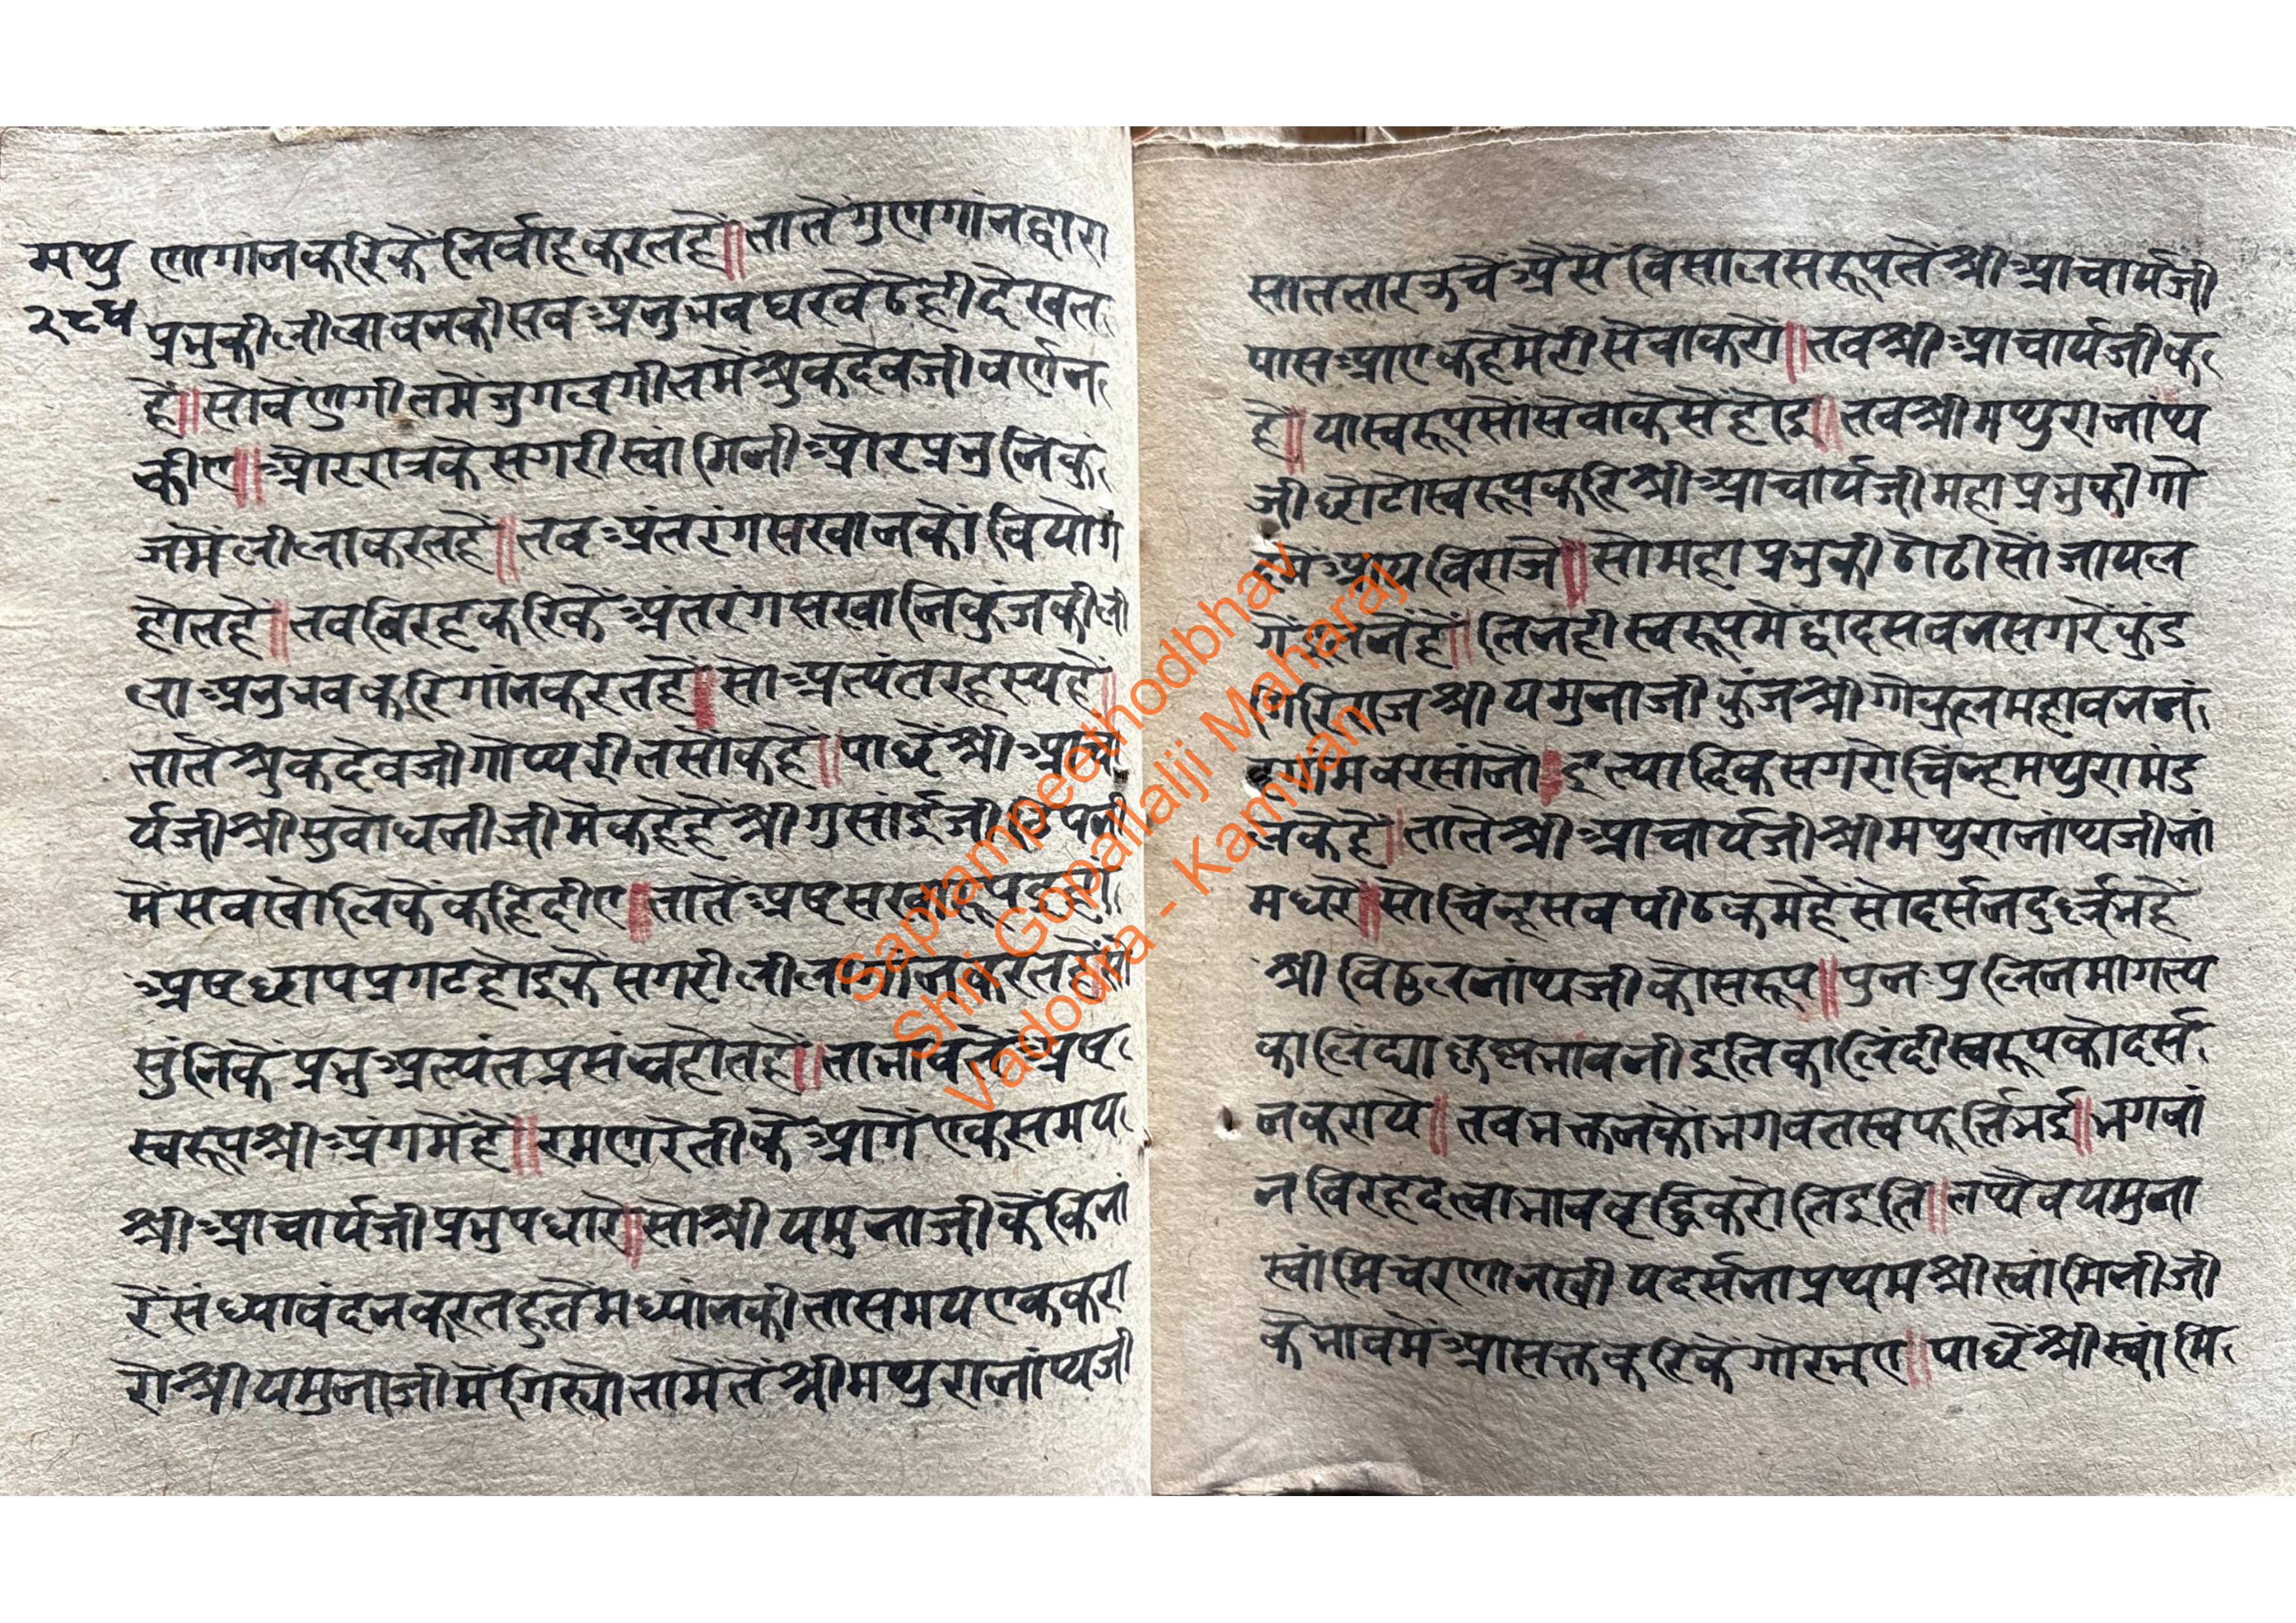 मथु
२८५
णगांनकरिकेंनिर्वाहकरतहें॥तातेंगुणगांनद्वारा
प्रभुकीलीलावनकीसवअनुभवघरवेठेहीदेखत
हें॥सोवेंणुगीतमेंजुगलगीतमेंश्रुकदेवजीवर्णन
कीए॥औररात्रकेसगरीस्वामिनीऔरप्रभुनिकुं
जमेंलीलाकरतहें॥तवअंतरंगसखानकोंवियोग
होतहें॥तवविरहकरिकेंअंतरंगसखानिकुंजकीली
लाअनुभवकरिगांनकरतहें॥सोअत्यंतरहस्यहें॥
तातेंश्रुकदेवजीगोप्यरीतसोंकहें॥पाछेंश्रीआचा
र्यजीश्रीसुवोधनीजीमेंकहेहेंश्रीगुसांईजीटिपनी
मेंसवखोलिकेंकहिदीए॥तातेंअष्टसखा
अष्टछापप्रगटहोइकेंसगरीलीलागांनकरतहेंसो
सुंनिकेंप्रभुअत्यंतप्रसंन्नहोतहें॥ताभावतेंअष्ट
स्वरूपश्रीअंगमेंहें॥रमणरेतीकेआगेंएकसमय
श्रीआचार्यजीप्रभुपधारे॥सोश्रीयमुनाजीकेंकिनां
रेंसंध्यावंदनकरतहुतेमध्यांनकीतासमयएककरा
रोश्रीयमुनाजीमेंगिरयोतामेंतेंश्रीमथुरानांथजी
साततारऊचेंऐसेंविसालसरूपतेंश्रीआचार्यजी
पासआएकहेमेरीसेवाकरों॥तवश्रीआचार्यजीक
हे॥यास्वरूपसोंसेवाकेसेंहोइ॥तवश्रीमथुरानांथ
जीछोटोस्वरूपकरिश्रीआचार्यजीमहाप्रभुकीगो
दमेंआयविराजे॥सोमहाप्रभुकीठोढीसोंजायल
गेंइतनेंहें॥तिनहीस्वरूपमेंद्वादसवनसगरेंकुंड
गिरिराजश्रीयमुनाजीकुंजश्रीगोकुलमहावननं
दगांमवरसांनों॥इत्यादिकसगरोचिंन्हमथुरामंड
लकेहें॥तातेंश्रीआचार्यजीश्रीमथुरानांथजीनां
मधरे॥सोचिंन्हसवपीठकमेंहेंसोदर्सनदुर्लभहें
श्रीविठ्ठलनांथजीकोसरूप॥पुनःप्रलिनमागत्य
कालिंद्याकृष्णभांवनीइतिकालिंदीस्वरूपकोदर्स
नकराये॥तवभक्तनकोंभगवतस्वफूर्तिभई॥भगवां
नविरहदत्वाभाववृद्धिकरोतिइति॥तथैवयमुना
स्वांमिचरणानखीयदर्सनाप्रथमश्रीस्वांमिनीजी
केभावमेंआसक्तकरिकेंगोरभए॥पाछेंश्रीस्वांमि
Saptampeethodbhav
Shri Gopallalji Maharaj
Vadodra - Kamvan